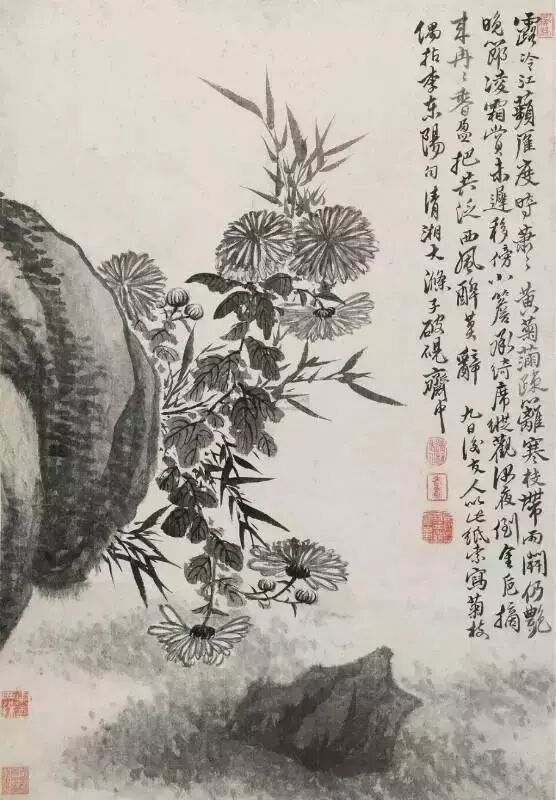 露冷江蘋雁度時叢〻黃菊滿疎籬寒枝帶雨開仍艷
晚節凌霜賞未遲移傍小簷承綺席縱觀深夜倒金卮摘
來冉〻香盈把共泛西風醉莫辭 九日後友人以此紙索寫菊枝
偶拈李東陽句清湘大滌子破硯齋中